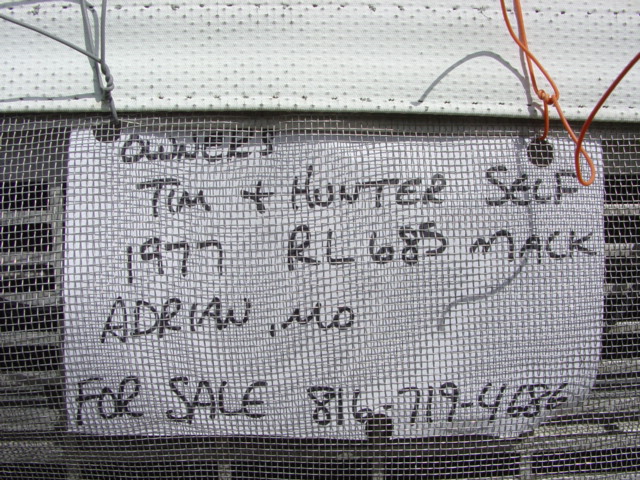 OWNER
TIM + HUNTER SELF
1977 RL685 MACK
ADRIAN, MO
FOR SALE 816-719-4686